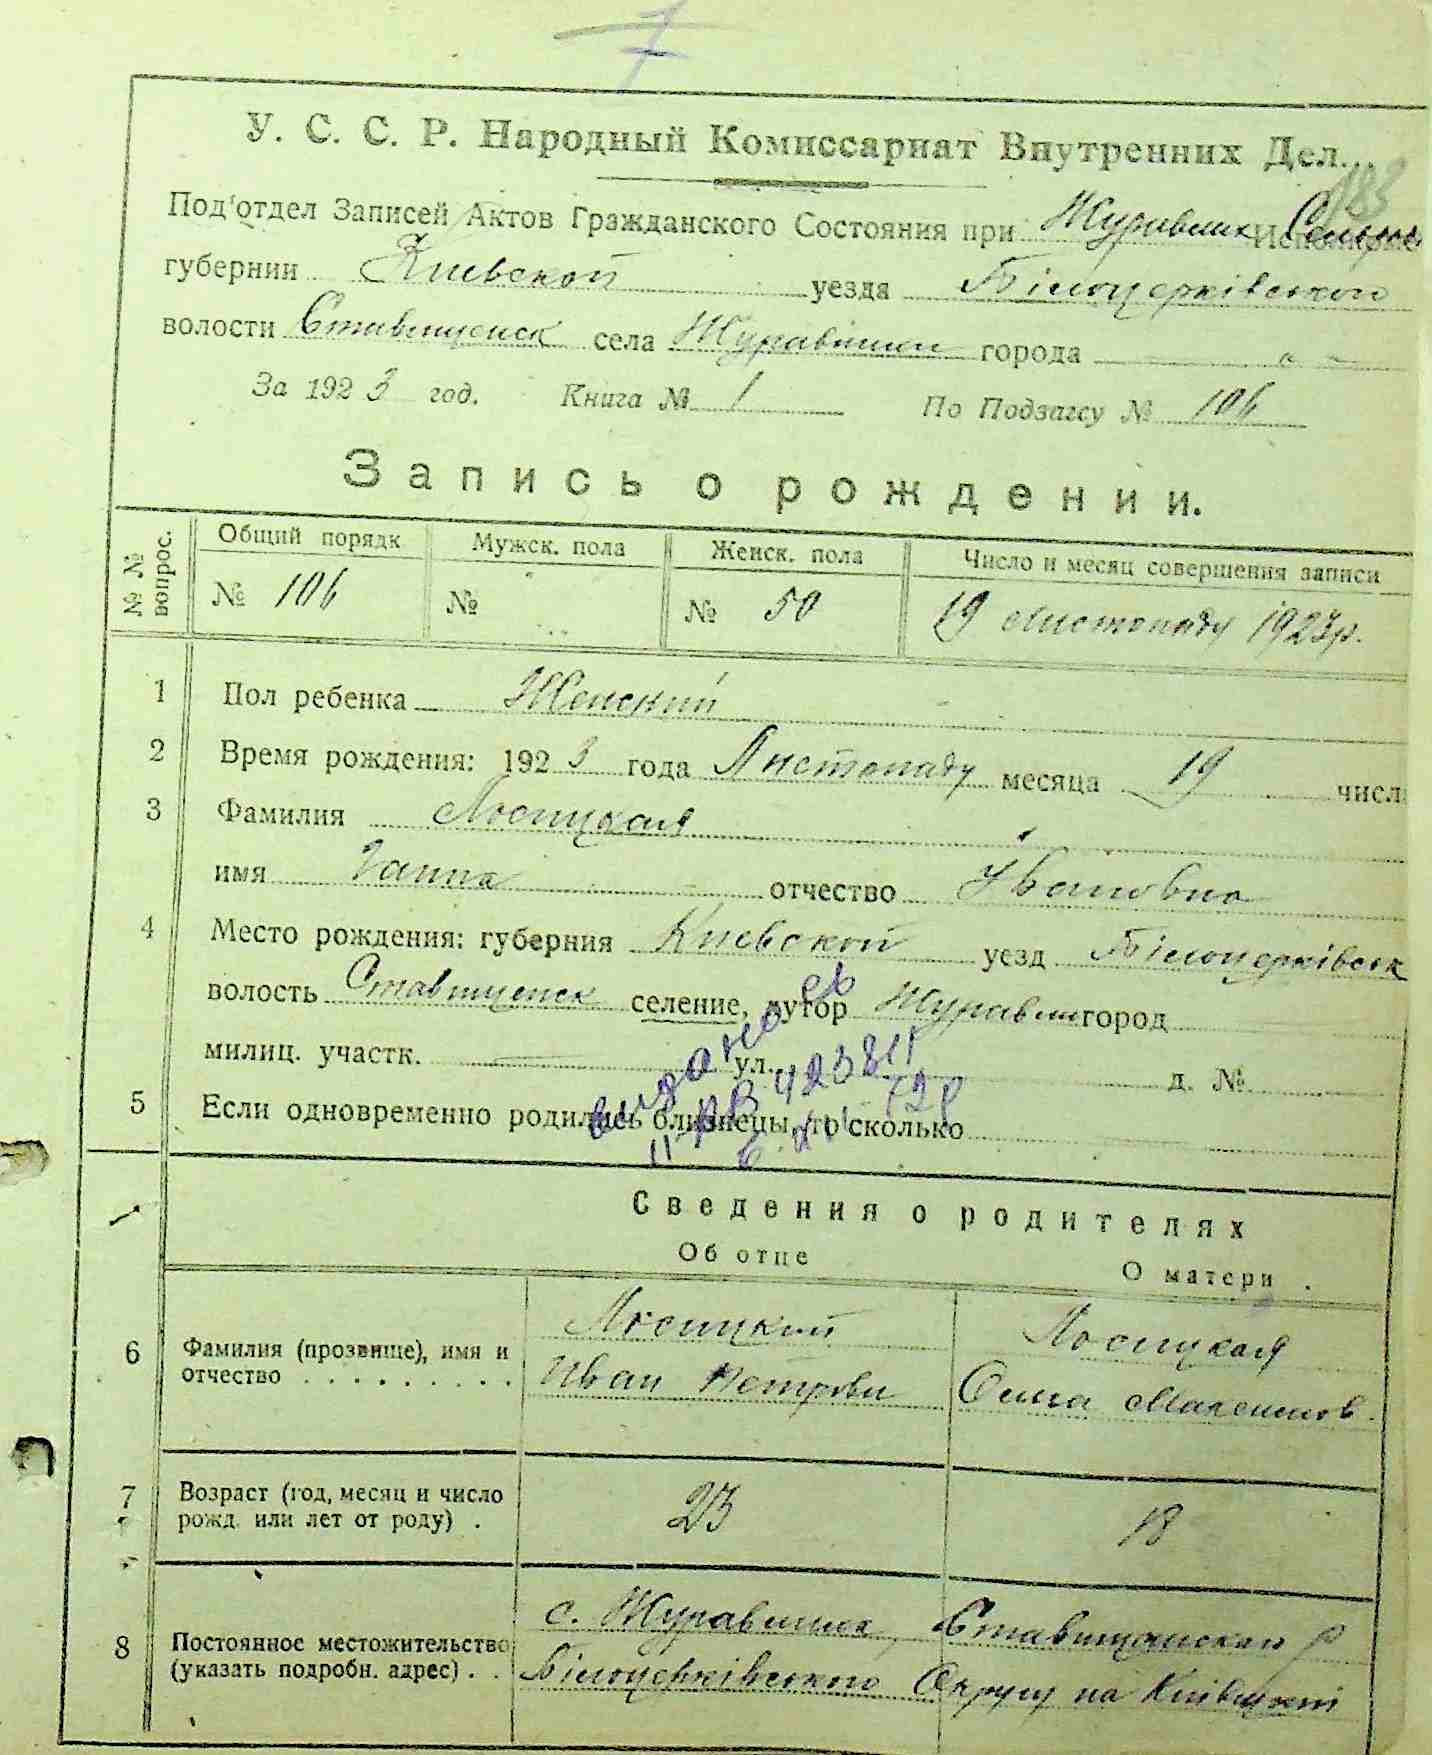 7
У. С. С. Р. Народный Комиссариат Внутренних Дел...
183
Под'отдел Записей Актов Гражданского Состояния при Журавлих
губернии Киевской уезда Білоцерківського
волости Ставищенск села Журавлихи города
За 1923 год. Книга № 1 По Подзагсу № 106
Запись о рождении.
№ № вопрос. Общий порядк Мужск. пола Женск. пола Число и месяц совершения записи
№ 106 № № 50 19 Листопаду 1923р.
1 Пол ребенка Женский
2 Время рождения: 1923 года Листопаду месяца 19 числ
3 Фамилия Лосицкая
имя Ганна отчество Ивановна
4 Место рождения: губерния Киевской уезд Білоцерківськ
волость Ставищенск селение, хутор Журавлих город
милиц. участк. ул. д. №
5 Если одновременно родились близнецы, то сколько
видано
Сведения о родителях
Об отце О матери
6 Фамилия (прозвище), имя и отчество Лосицкий Иван Петрови Лосицкая Ольга Максимов.
7 Возраст (год, месяц и число рожд. или лет от роду) 23 18
8 Постоянное местожительство (указать подробн. адрес) с. Журавлиха, Ставищанского р
Білоцерківського Округу на Київщині